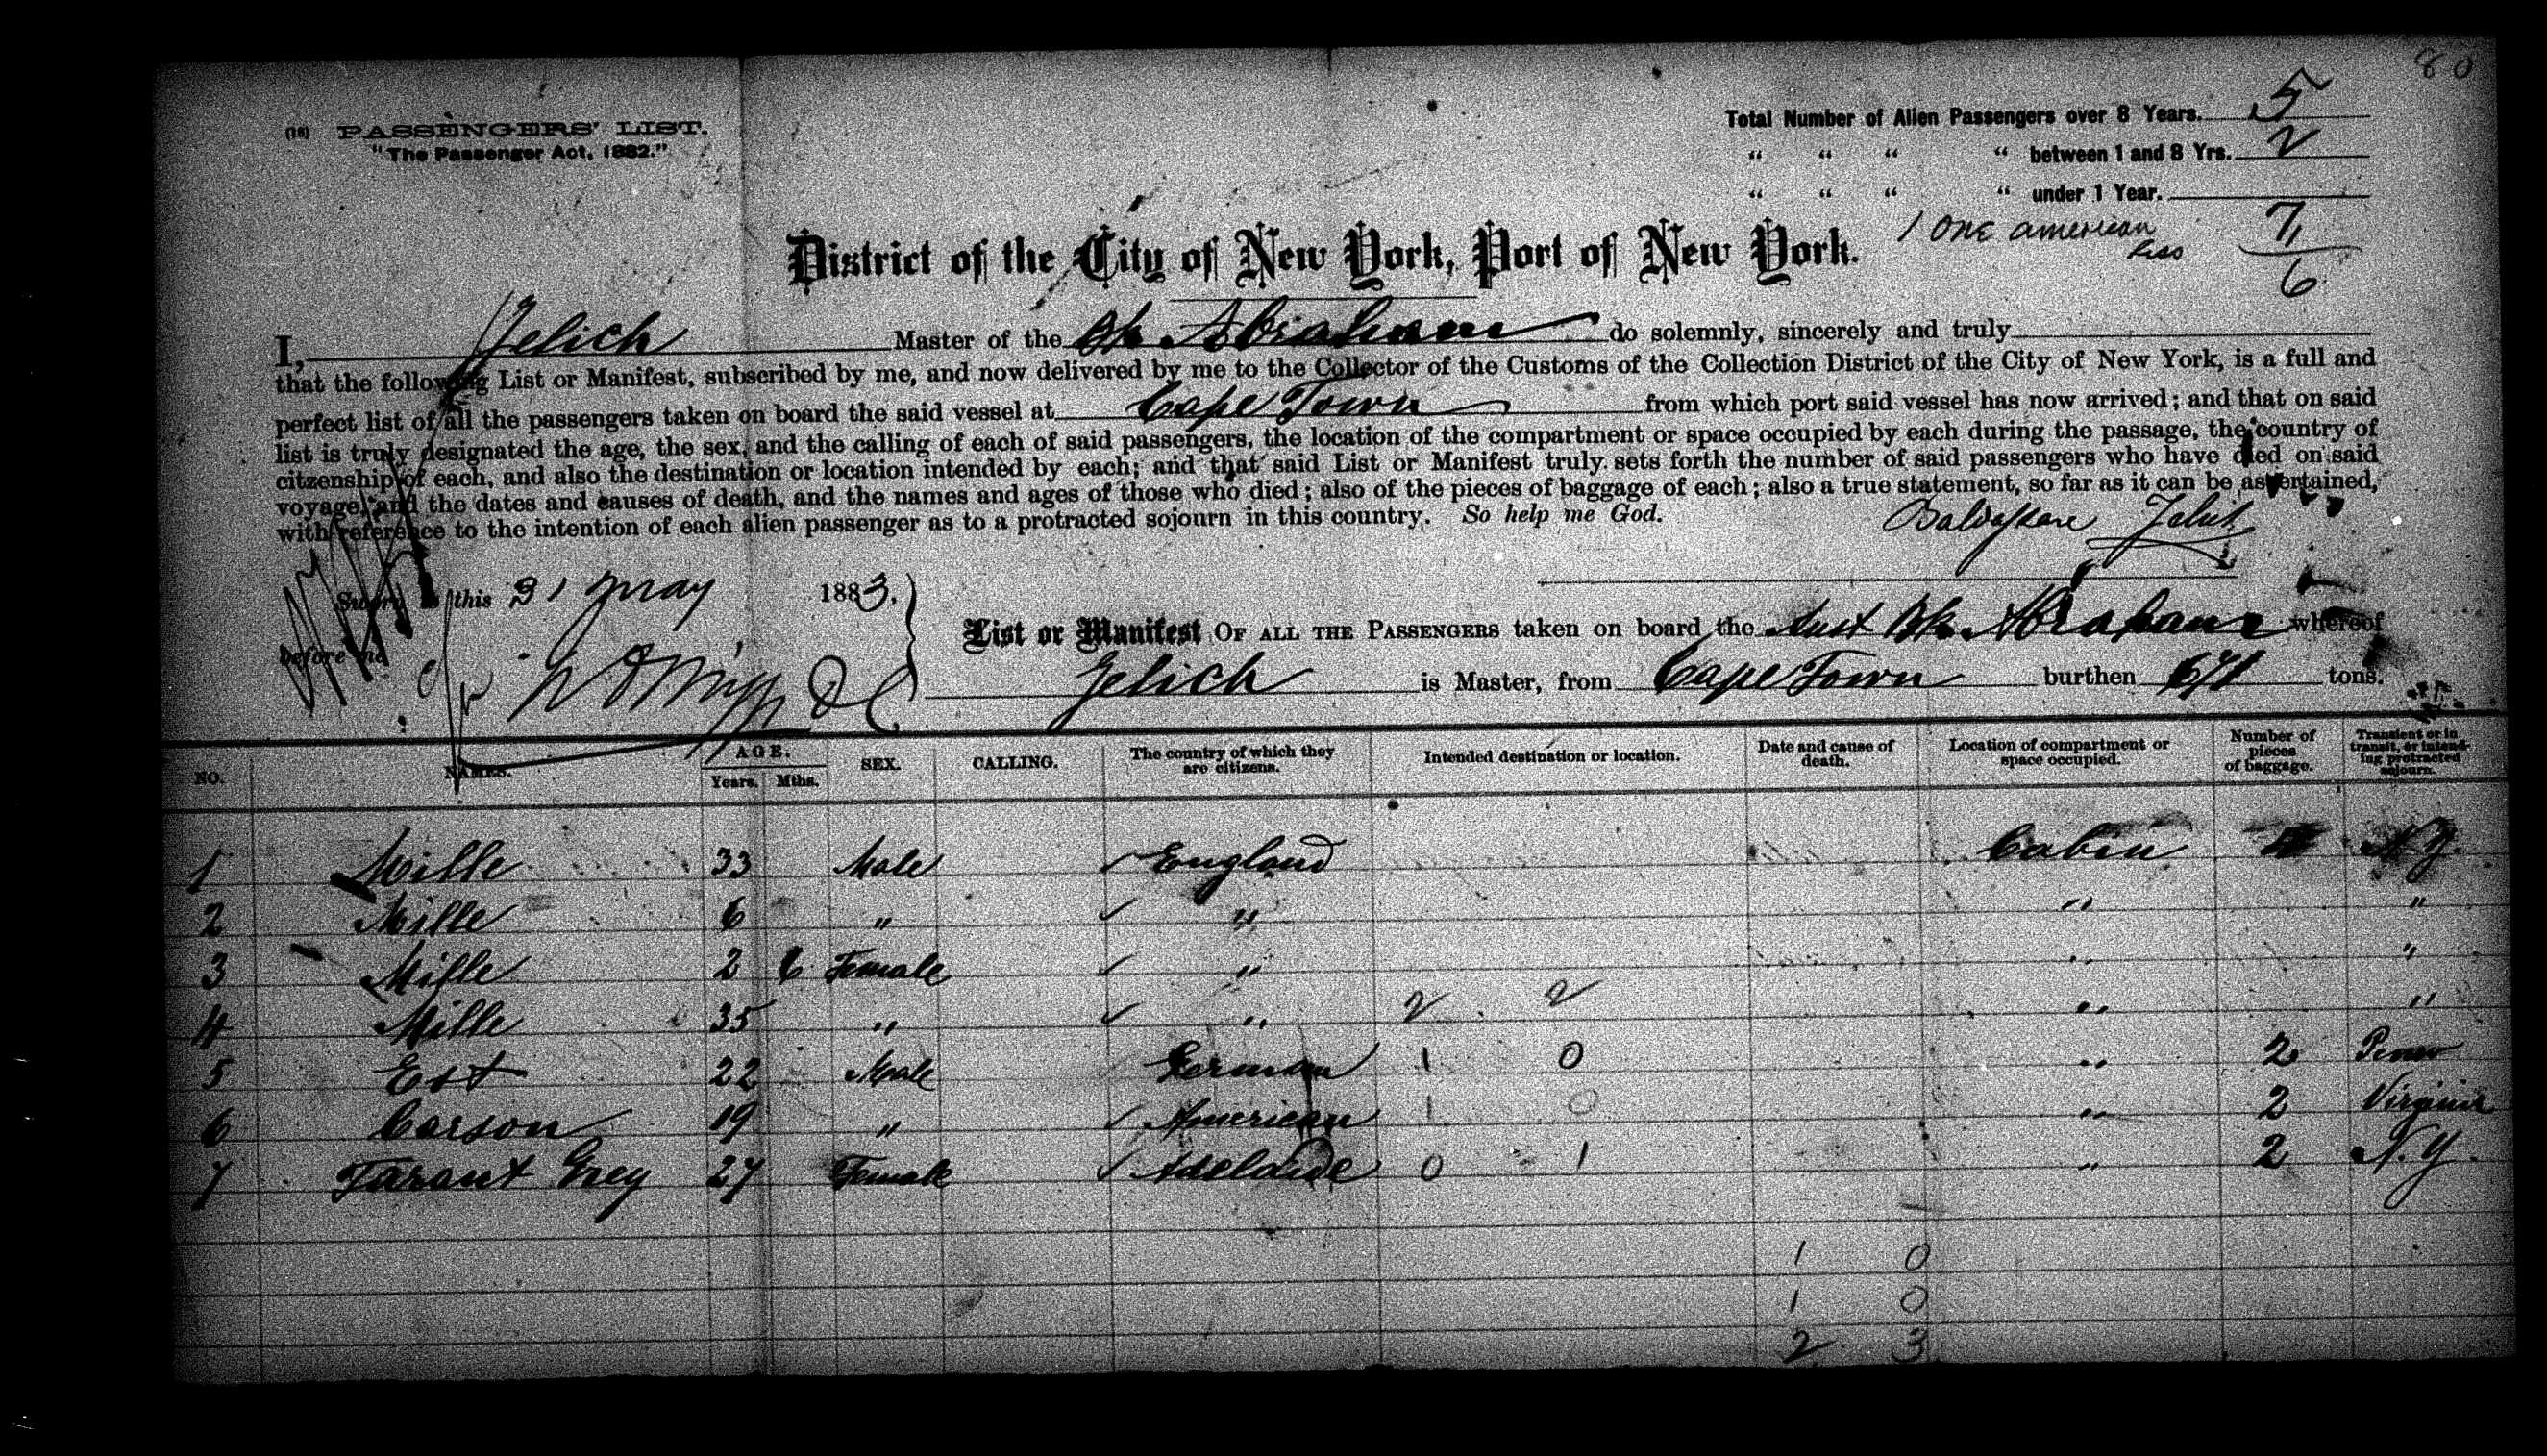 80
(18) PASSENGERS' LIST.
"The Passenger Act, 1882."
Total Number of Alien Passengers over 8 Years. 5
" " " " between 1 and 8 Yrs. 2
" " " " under 1 Year.
1 One american less 7
6
District of the City of New York, Port of New York.
I, Jelich Master of the Bk Abraham do solemnly, sincerely and truly
that the following List or Manifest, subscribed by me, and now delivered by me to the Collector of the Customs of the Collection District of the City of New York, is a full and
perfect list of all the passengers taken on board the said vessel at Cape Town from which port said vessel has now arrived; and that on said
list is truly designated the age, the sex, and the calling of each of said passengers, the location of the compartment or space occupied by each during the passage, the country of
citzenship of each, and also the destination or location intended by each; and that said List or Manifest truly sets forth the number of said passengers who have died on said
voyage, and the dates and causes of death, and the names and ages of those who died; also of the pieces of baggage of each; also a true statement, so far as it can be ascertained,
with reference to the intention of each alien passenger as to a protracted sojourn in this country. So help me God.
Jelich
this 31 May 1883.
before me
List or Manifest OF ALL THE PASSENGERS taken on board the Aust Bk Abraham whereof
Jelich is Master, from Cape Town burthen 671 tons.
NO. NAMES. AGE. Years. Mths. SEX. CALLING. The country of which they are citizens. Intended destination or location. Date and cause of death. Location of compartment or space occupied. Number of pieces of baggage. Transient or in transit, or intending protracted sojourn.
1 Mille 33 Male England Cabin N.Y.
2 Mille 6 " " " "
3 Mille 2 6 Female " " "
4 Mille 35 " " 2 2 " "
5 Est 22 Male German 1 0 " 2
6 Carson 19 " American 1 0 " 2 Virginia
7 Tarant Grey 27 Female Adelaide 0 1 " 2 N.Y.
1 0
1 0
2 3